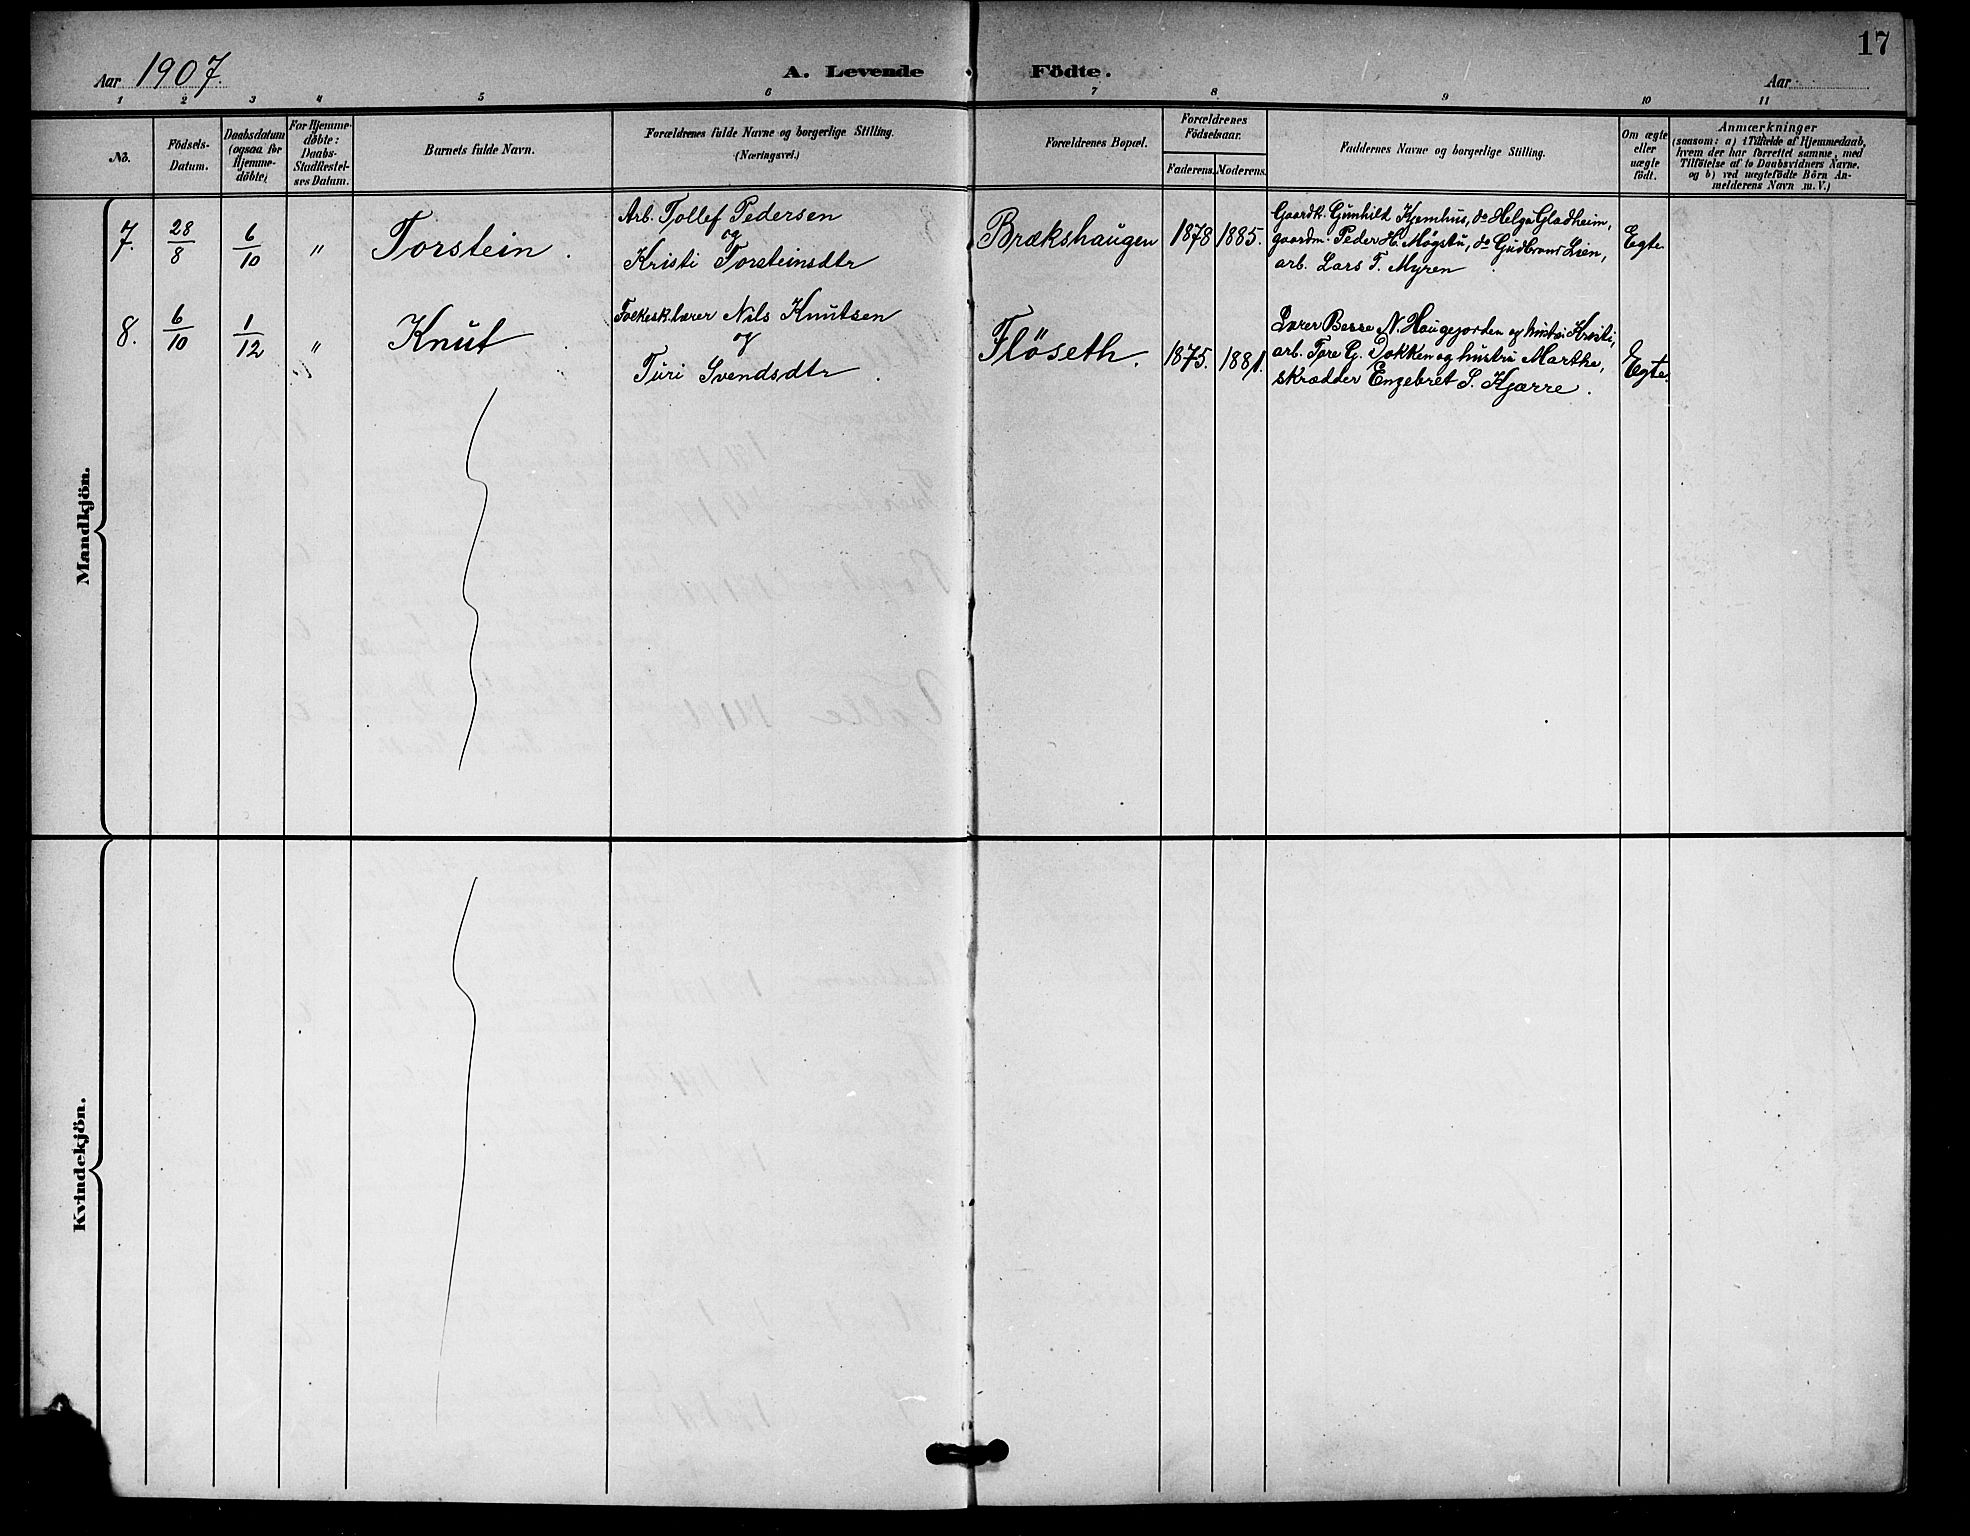 17
Aar 1907.
A. Levende Födte.
Aar
1 2 3 4 5 6 7 8. 9 10 11
No.
Födsels-
Datum.
Daabsdatum
(ogsaa for
Hjemme-
döbte)
For Hjemme-
döbte:
Daabs-
Stadfæstel-
ses Datum.
Barnets fulde Navn.
Forældrenes fulde Navne og borgerlige Stilling.
(Næringsvei.)
Forældrenes Bopæl.
Forældrenes
Födselsaar.
Faderens. Moderens.
Faddernes Navne og borgerlige Stilling.
Om ægte
eller
uægte
födt.
Anmærkninger
(saasom: a) i Tilfælde af Hjemmedaab,
hvem der har forrettet samme, med
Tilföielse af to Daabsvidners Navne.
og b) ved uægtefödte Börn An-
melderens Navn m. V.)
Mandkjön.
7. 28/8 6/10 " Torstein.
Arb. Tollef Pedersen
og
Kristi Torsteinsdtr
Brækshaugen 1878 1885.
Gaardk. Gunhild Kjemhus, do Helga Gladheim,
gaardm. Peder H. Møgstu, do Gudbrand Lien,
arb. Lars T. Myren
Egte.
8. 6/10 1/12 " Knut.
Folkesk.lærer Nils Knutsen
og
Turi Svendsdtr.
Flöseth. 1875. 1881.
Lærer Besse N. Haugejorden og hustru Kristi,
arb. Tore G. Dokken og hustru Marthe,
skrædder Engebret S. Kjærre.
Egte.
Kvindekjön.